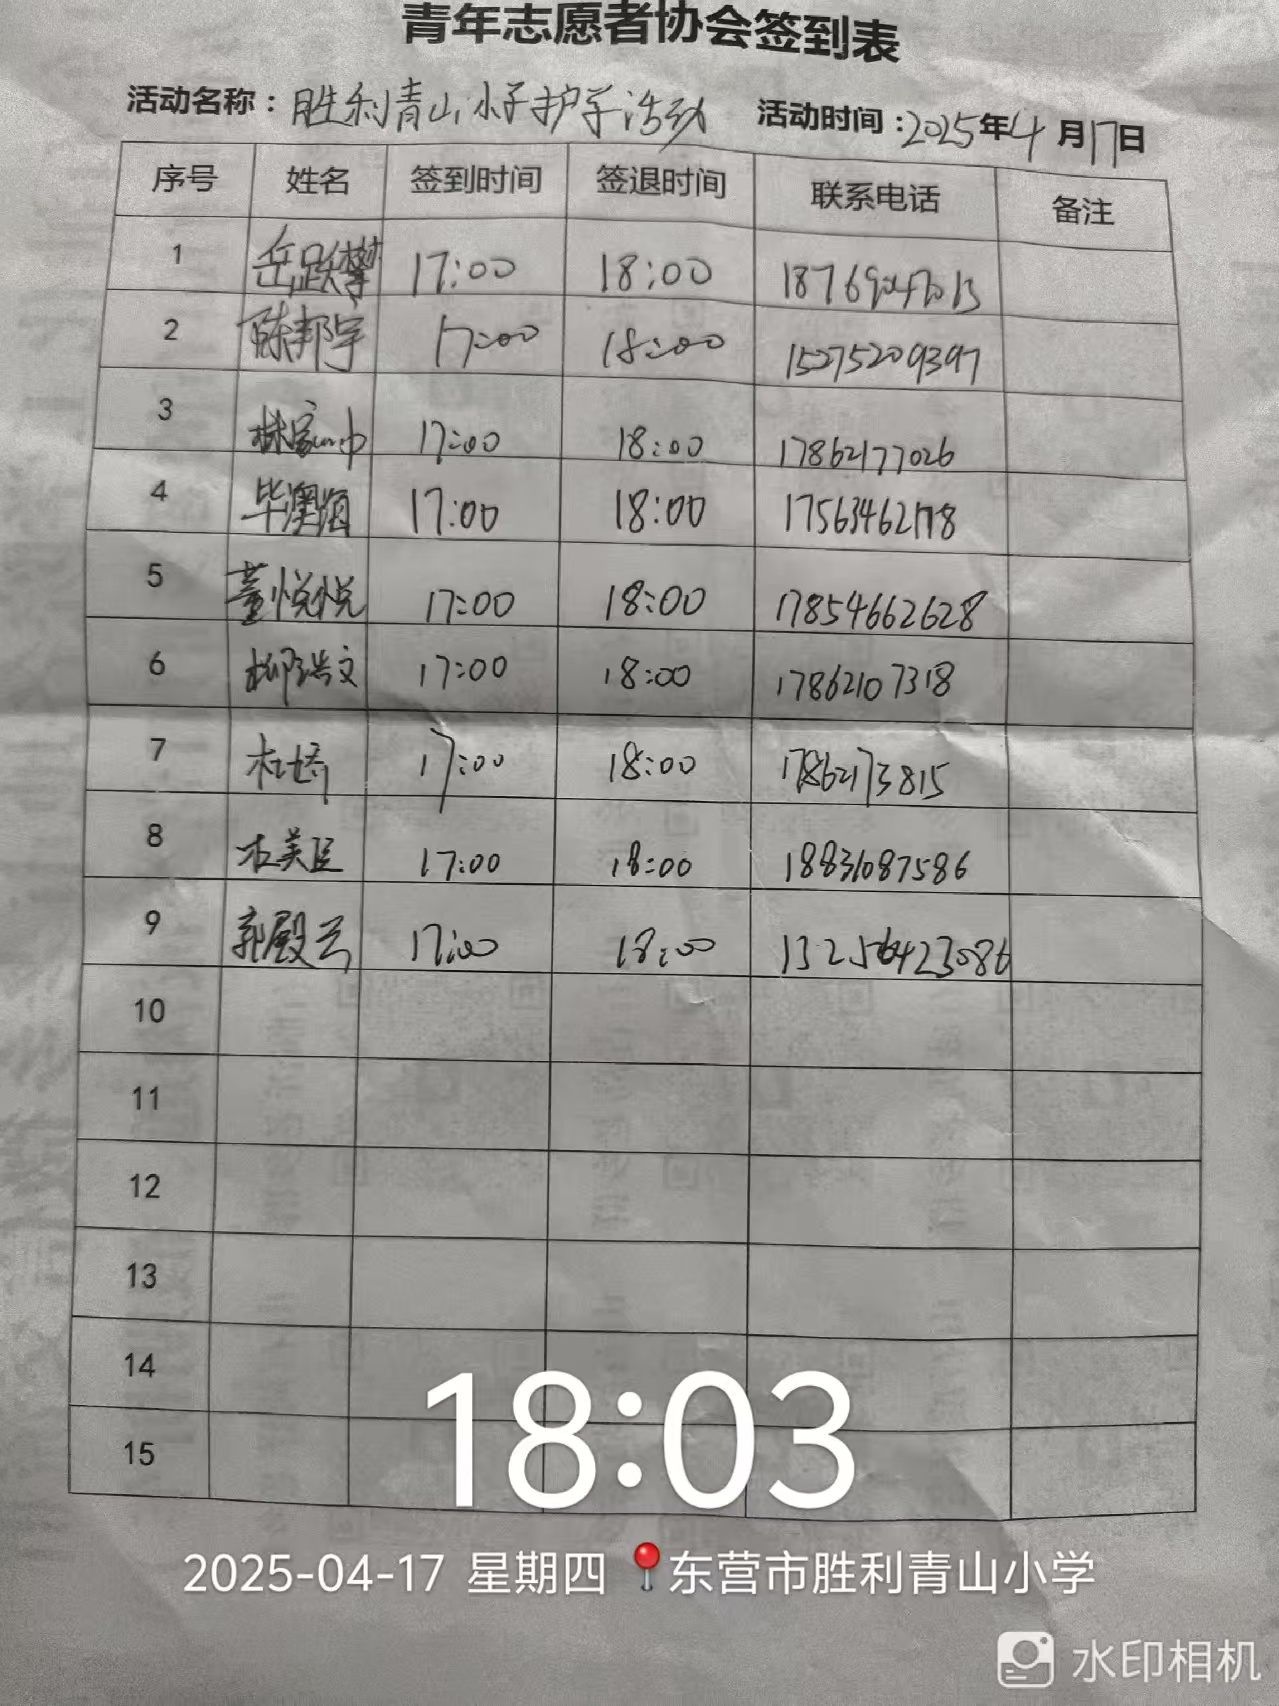 青年志愿者协会签到表
活动名称：胜利青山小学护学活动 活动时间：2025年4月17日
序号 姓名 签到时间 签退时间 联系电话 备注
1 岳跃攀 17:00 18:00
2 陈邦宇 17:00 18:00 15275209397
3 17:00 18:00 17862177026
4 毕澳 17:00 18:00 17563462178
5 董悦悦 17:00 18:00 17854662628
6 柳洪文 17:00 18:00 17862107318
7 17:00 18:00 17862173815
8 杜美臣 17:00 18:00 18831087586
9 郭殿云 17:00 18:00
10
11
12
13
14
15
18:03
2025-04-17 星期四 东营市胜利青山小学
水印相机